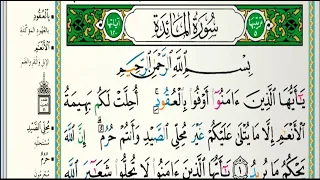 سُورَةُ الْمَائِدَةِ
بِسْمِ اللَّهِ الرَّحْمَٰنِ الرَّحِيمِ
يَٰٓأَيُّهَا الَّذِينَ ءَامَنُوٓا۟ أَوْفُوا۟ بِالْعُقُودِ أُحِلَّتْ لَكُم بَهِيمَةُ
الْأَنْعَٰمِ إِلَّا مَا يُتْلَىٰ عَلَيْكُمْ غَيْرَ مُحِلِّي الصَّيْدِ وَأَنتُمْ حُرُمٌ إِنَّ اللَّهَ
يَحْكُمُ مَا يُرِيدُ ١ يَٰٓأَيُّهَا الَّذِينَ ءَامَنُوا۟ لَا تُحِلُّوا۟ شَعَٰٓئِرَ اللَّهِ
بِالْعُقُودِ
الْأَنْعَٰمِ
مُحِلِّي الصَّيْدِ
حُرُمٌ